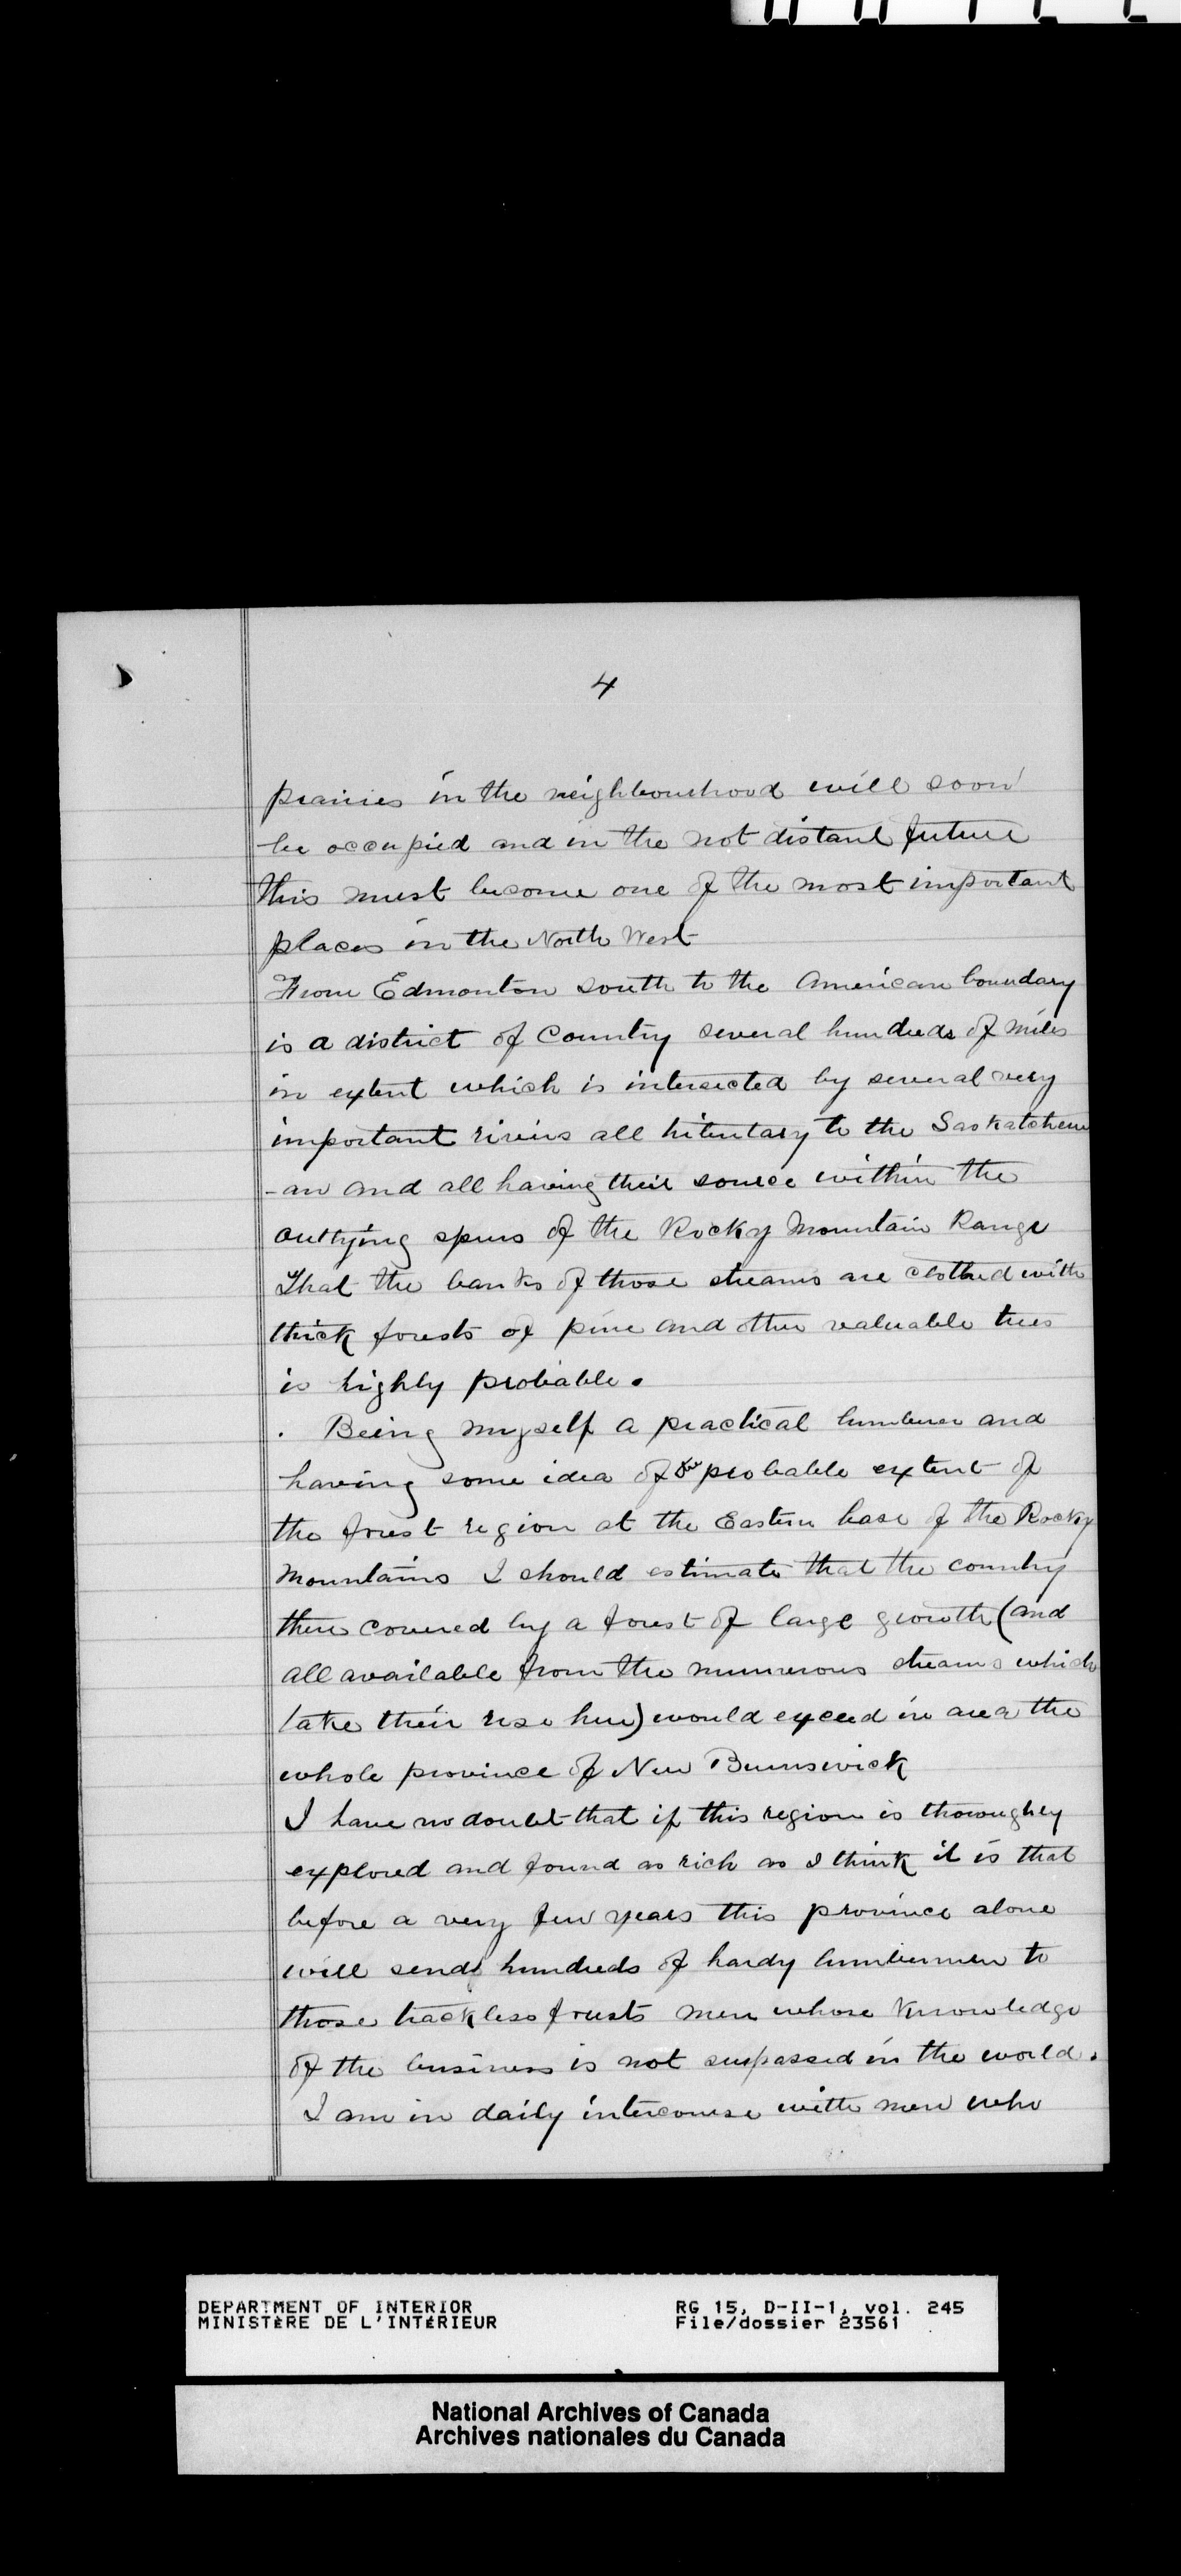 4
prairies in the neighbourhood will soon
be occupied and in the not distant future
this must become one of the most important
places in the North West
From Edmonton south to the American boundary
is a district of country several hundreds of miles
in extent which is intersected by several very
important rivers all tributary to the Saskatchew
-an and all having their source within the
outlying spurs of the Rocky Mountain Range
That the banks of those streams are clothed with
thick forests of pine and other valuable trees
is highly probable.
. Being myself a practical lumberer and
having some idea of the probable extent of
the forest region at the Eastern base of the Rocky
Mountains I should estimate that the country
there covered by a forest of large growth (and
all available from the numerous streams which
take their rise here) would exceed in area the
whole province of New Brunswick
I have no doubt that if this region is thoroughly
explored and found as rich as I think it is that
before a very few years this province alone
will send hundreds of hardy lumbermen to
those trackless forests men whose knowledge
of the business is not surpassed in the world.
I am in daily intercourse with men who
DEPARTMENT OF INTERIOR RG 15, D-II-1, vol. 245
MINISTÈRE DE L'INTÉRIEUR File/dossier 23561
National Archives of Canada
Archives nationales du Canada